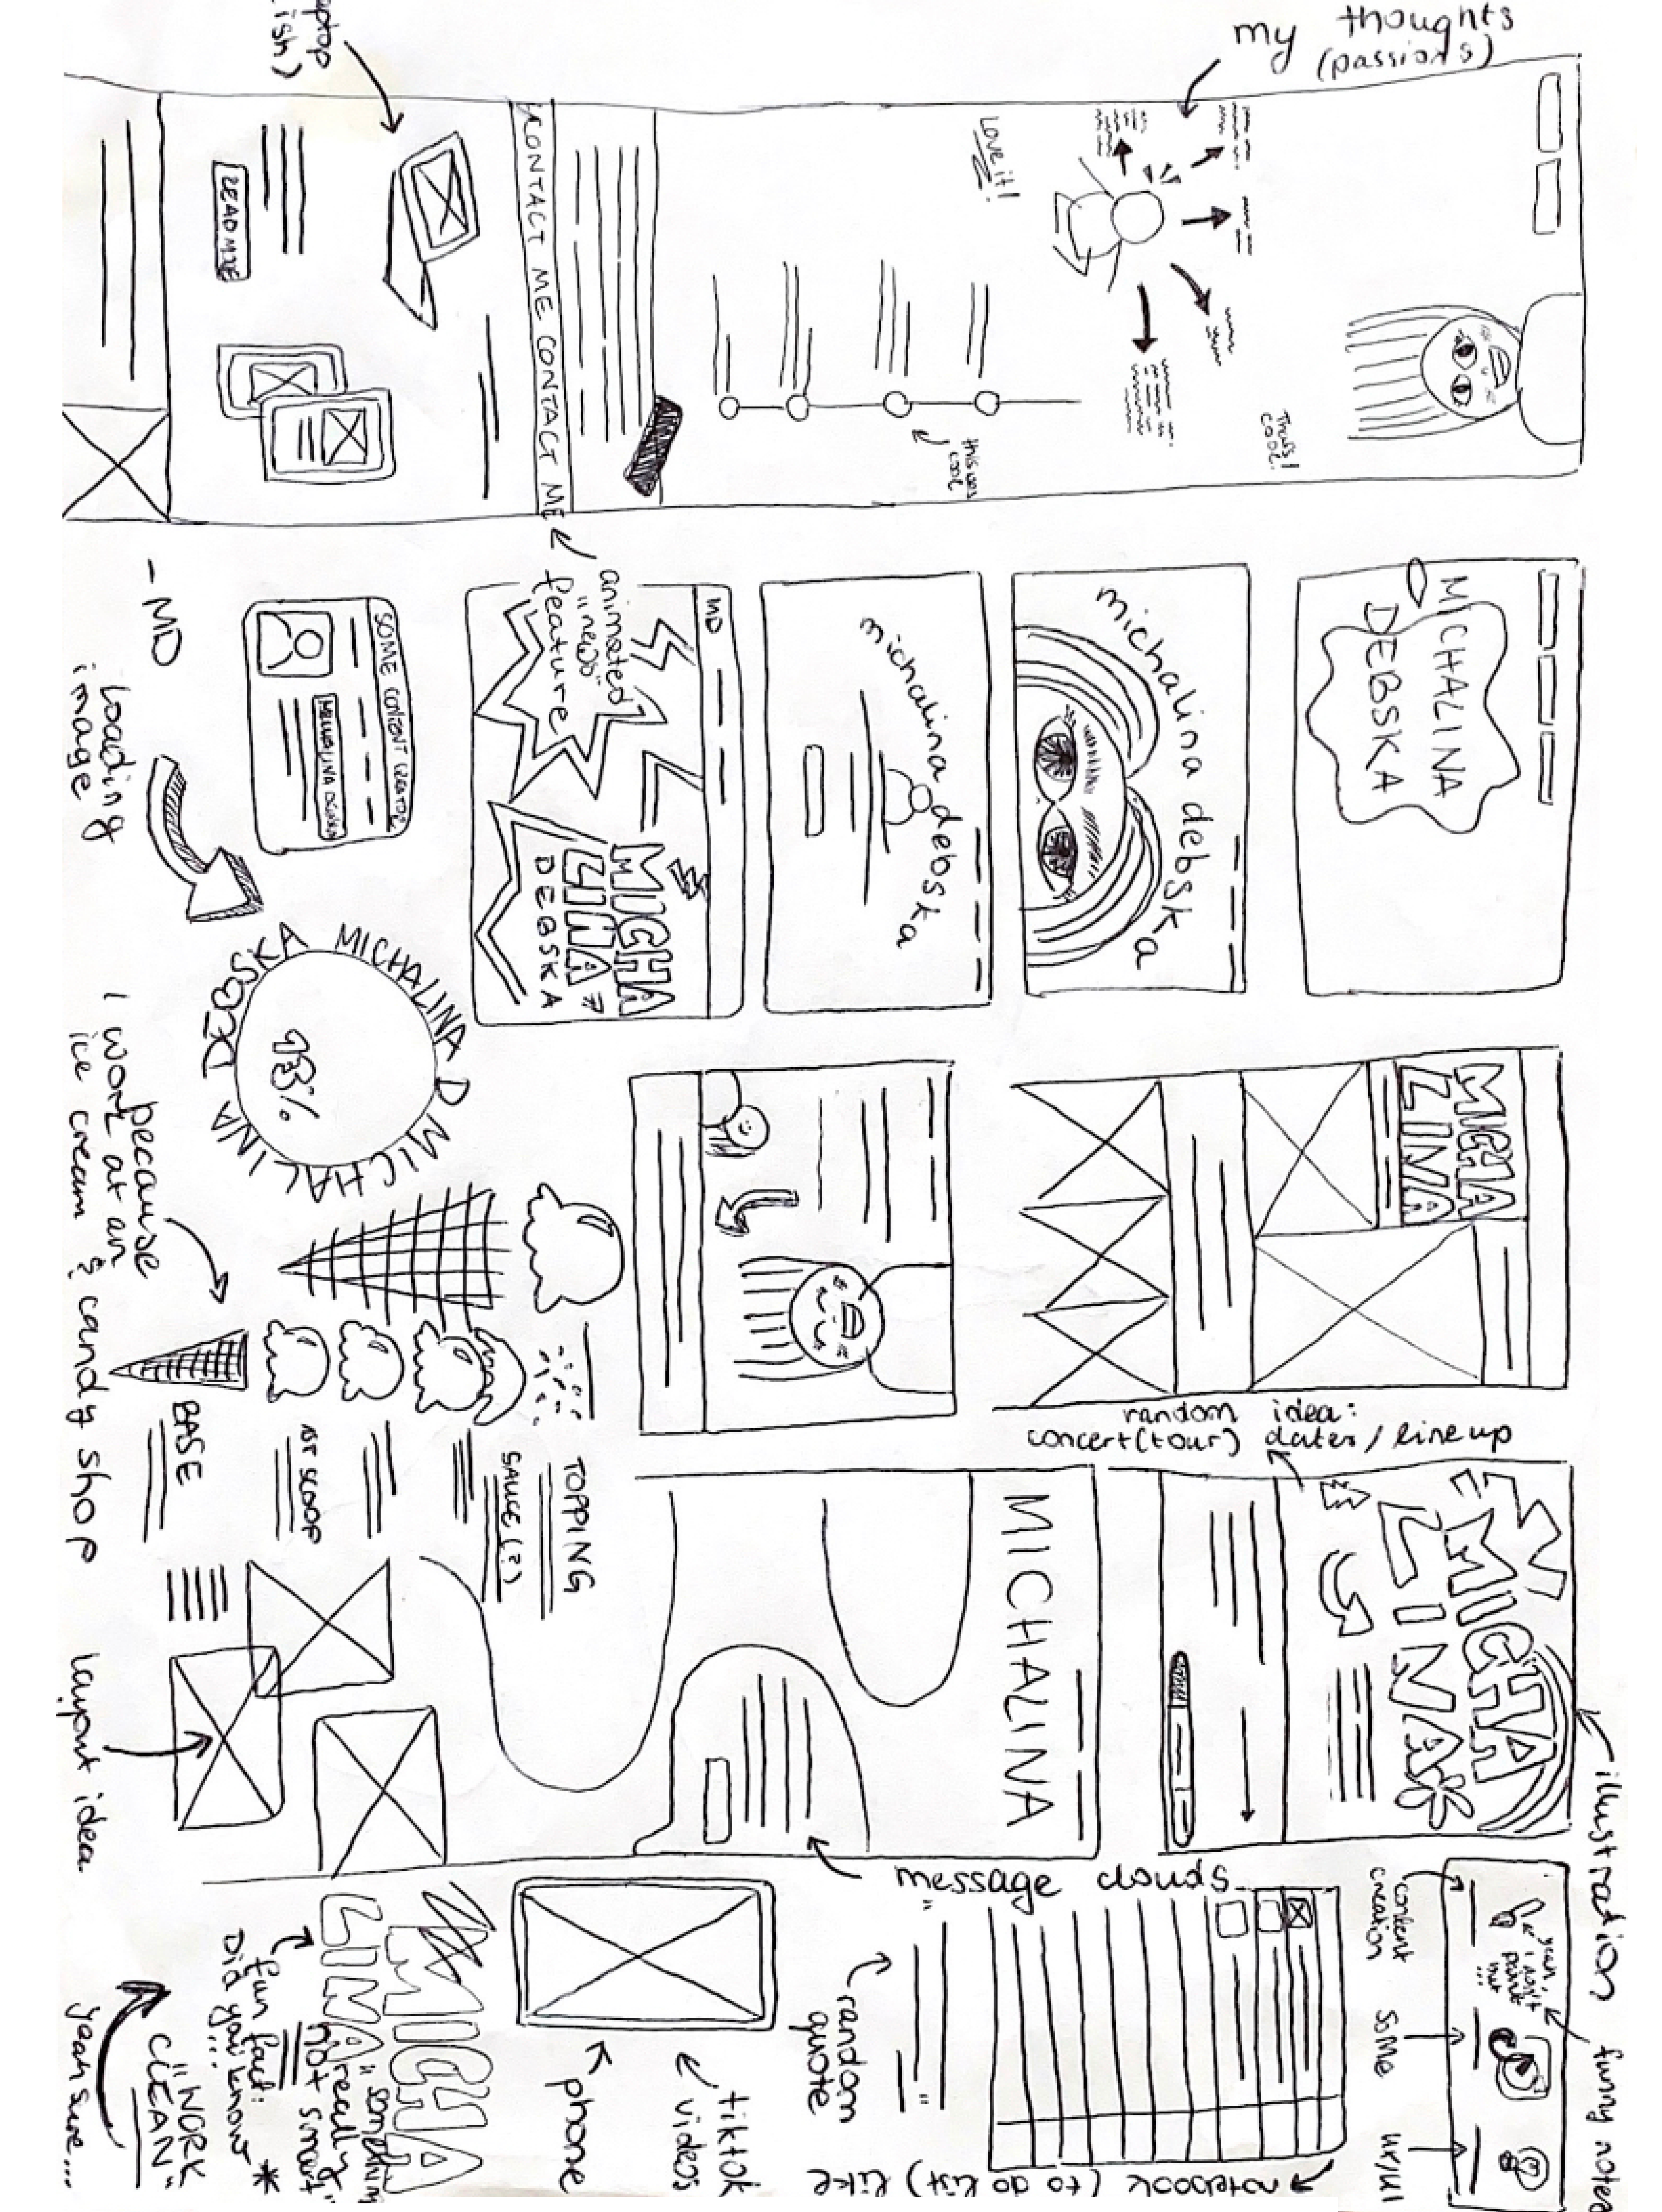 my thoughts
(passions)
Love it!
That's
cool!
this was
cool
CONTACT ME CONTACT ME
READ MORE
animated
"news"
feature
MICHALINA
DEBSKA
michalina debska
michalina debska
MD
MICHA
LINA
DEBSKA
SOME CONTENT CREATOR
- MD
loading
image
MICHALINA D MICHALINA DEBSKA
93%
because
I work at an
ice cream & candy shop
MICHA
LINA
random idea:
concert (tour) dates / line up
TOPPING
SAUCE (?)
1ST SCOOP
BASE
layout idea
MICHA
LINA
MICHALINA
illustration
message clouds
content
creation
SoMe
UX/UI
yeah,
I can't
paint
but
...
funny notes
notebook (to do list) like
" "
random
quote
tiktok
videos
phone
MICHA
LINA
"something
really
not smart"
fun fact:
Did you know
...
*
"WORK
CLEAN"
yeah sure....